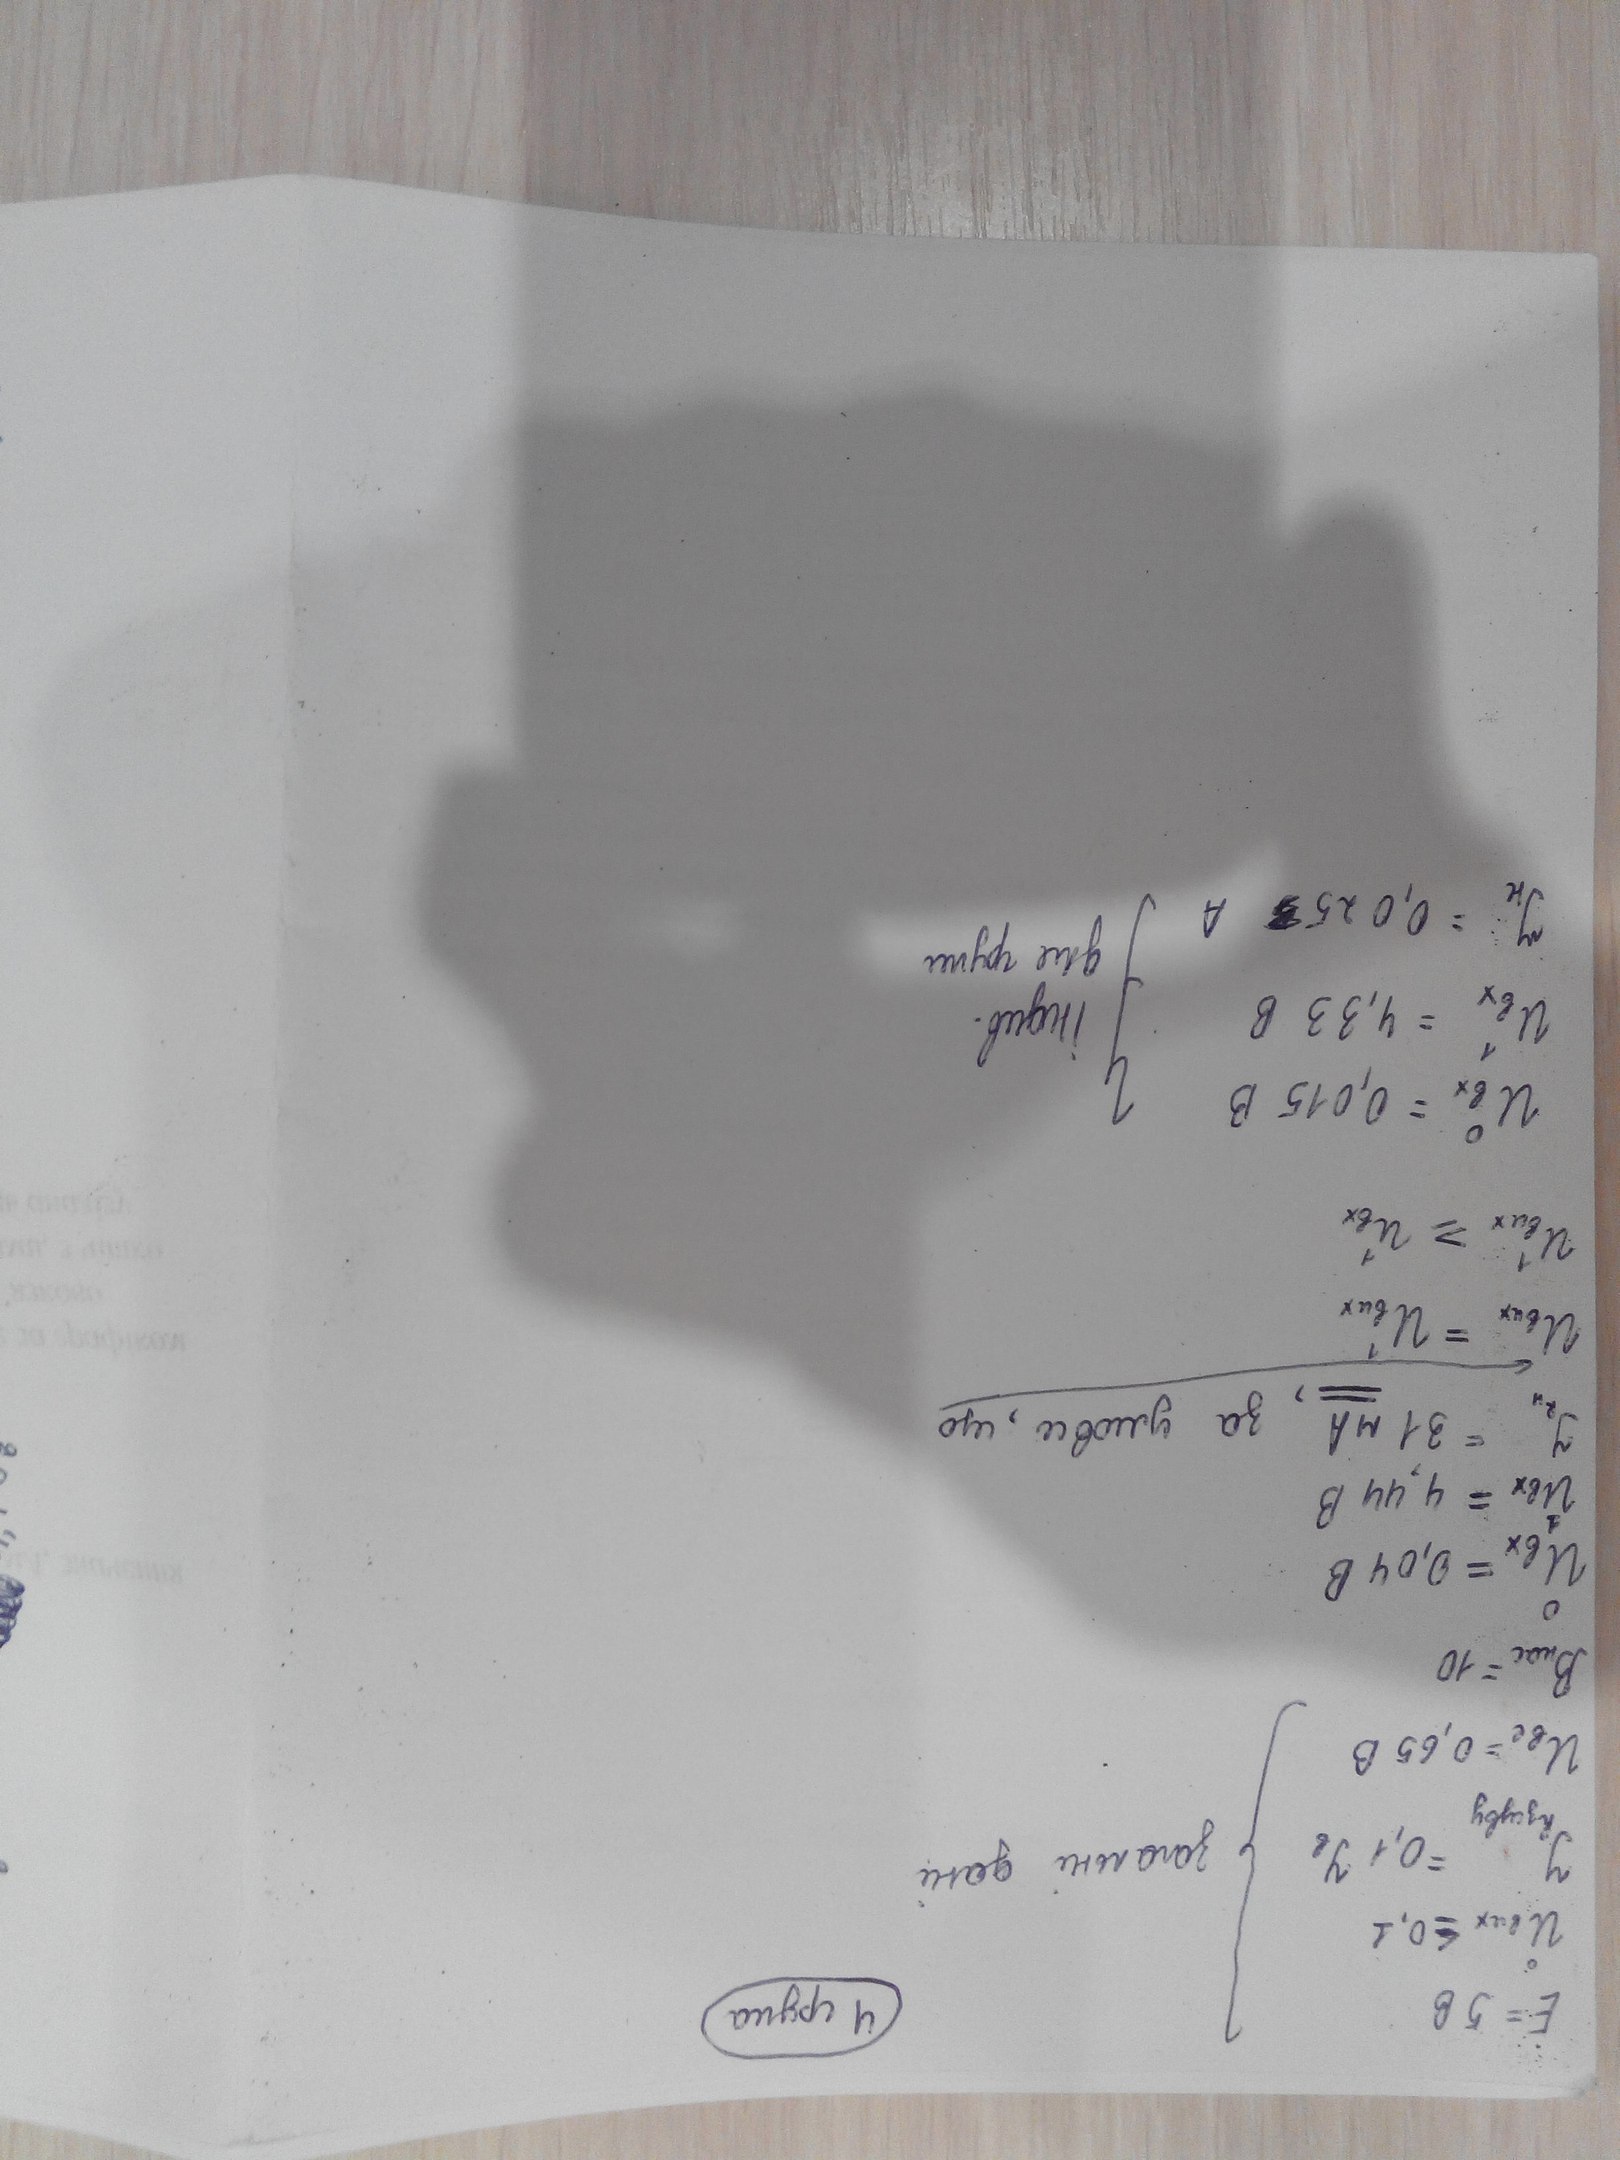 4 група
E = 5 В
U⁰вих ≤ 0,1
Iкзсуву = 0,1 Iб
загальні дані
Uбе = 0,65 В
Bнас = 10
U⁰вх = 0,04 В
U¹вх = 4,44 В
= 31 мА, за умови, що
Uвих = U¹вих
U¹вих = U¹вх
U⁰вх = 0,015 В
U¹вх = 4,33 В
Iн = 0,025 А
індив.
для групи